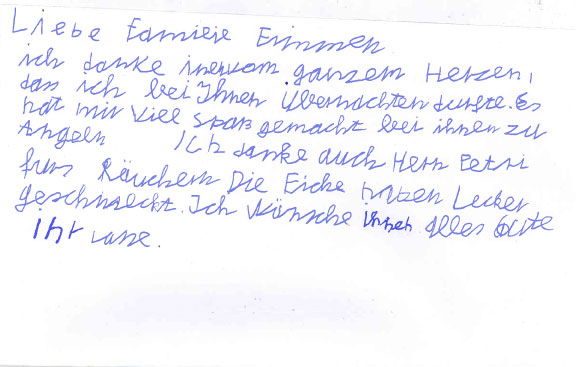 Liebe Familie Emmen
ich danke ihnen vom ganzem Herzen,
das ich bei Ihnen Übernachten durfte. Es
hat mir viel Spaß gemacht bei ihnen zu
Angeln Ich danke auch Herr Petri
furs Räuchern Die Fiche hatten Lecker
geschmeckt. Ich Wünsche Ihnen alles Gute
Ihr